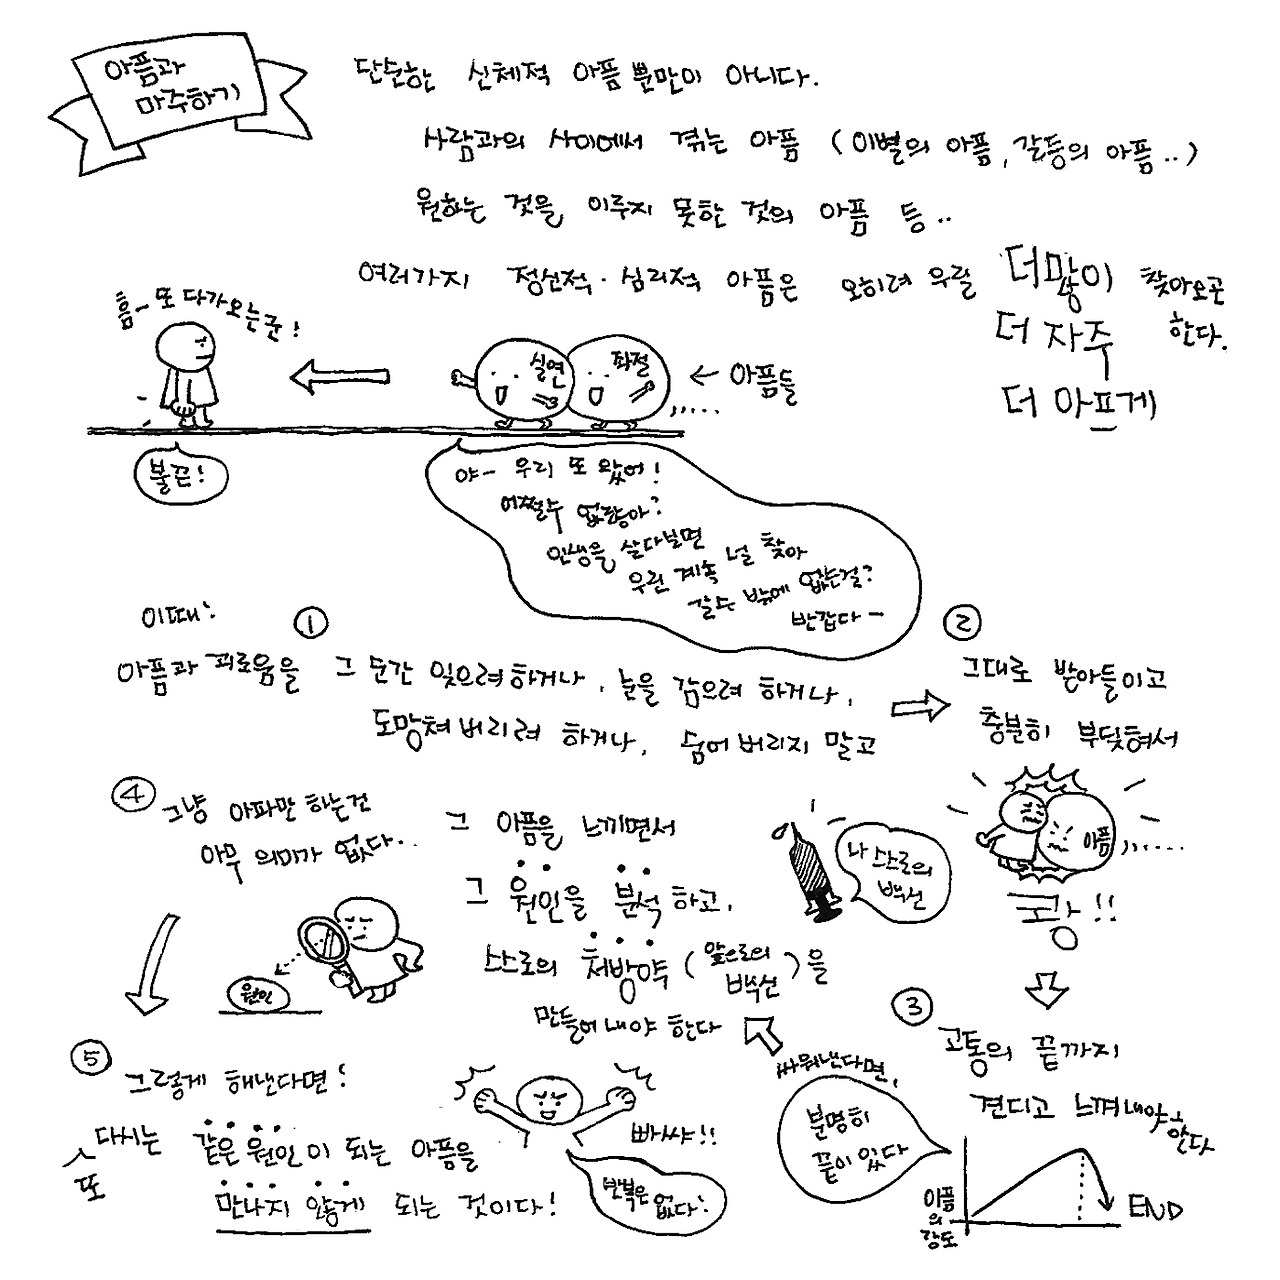 아픔과
마주하기
단순한 신체적 아픔뿐만이 아니다.
사람과의 사이에서 겪는 아픔 (이별의 아픔, 갈등의 아픔..)
원하는 것을 이루지 못한 것의 아픔 등..
여러가지 정신적·심리적 아픔은 오히려 우릴 더 많이 찾아오곤
더 자주 한다.
더 아프게
흠- 또 다가오는군!
실연
좌절
← 아픔들
불끈!
야- 우리 또 왔어!
어쩔수 없잖아?
인생을 살다보면
우린 계속 널 찾아
갈수 밖에 없는걸?
반갑다-
이때!
①
아픔과 괴로움을 그 순간 잊으려하거나, 눈을 감으려 하거나,
도망쳐버리려 하거나, 숨어버리지 말고
②
그대로 받아들이고
충분히 부딪혀서
아픔
쾅!!
③
고통의 끝까지
견디고 느껴내야한다
싸워낸다면,
분명히
끝이 있다
아픔의 강도
END
④
그냥 아파만 하는건
아무 의미가 없다..
그 아픔을 느끼면서
그 원인을 분석하고,
스스로의 처방약 (앞으로의 백신)을
만들어내야 한다
나 스스로의
백신
원인
⑤
그렇게 해낸다면!
또 다시는 같은 원인이 되는 아픔을
만나지 않게 되는 것이다!
빠샤!!
반복은
없다!